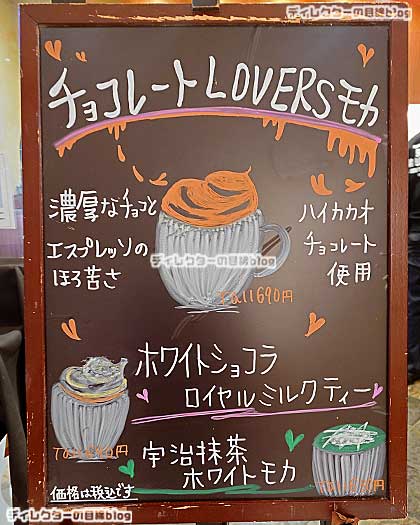 ディレクターの目線blog
チョコレートLOVERSモカ
濃厚なチョコと
エスプレッソの
ほろ苦さ
ハイカカオ
チョコレート
使用
ディレクターの目線blog
Tall 690円
ホワイトショコラ
ロイヤルミルクティー
宇治抹茶
ホワイトモカ
価格は税込です
ディレクターの目線blog